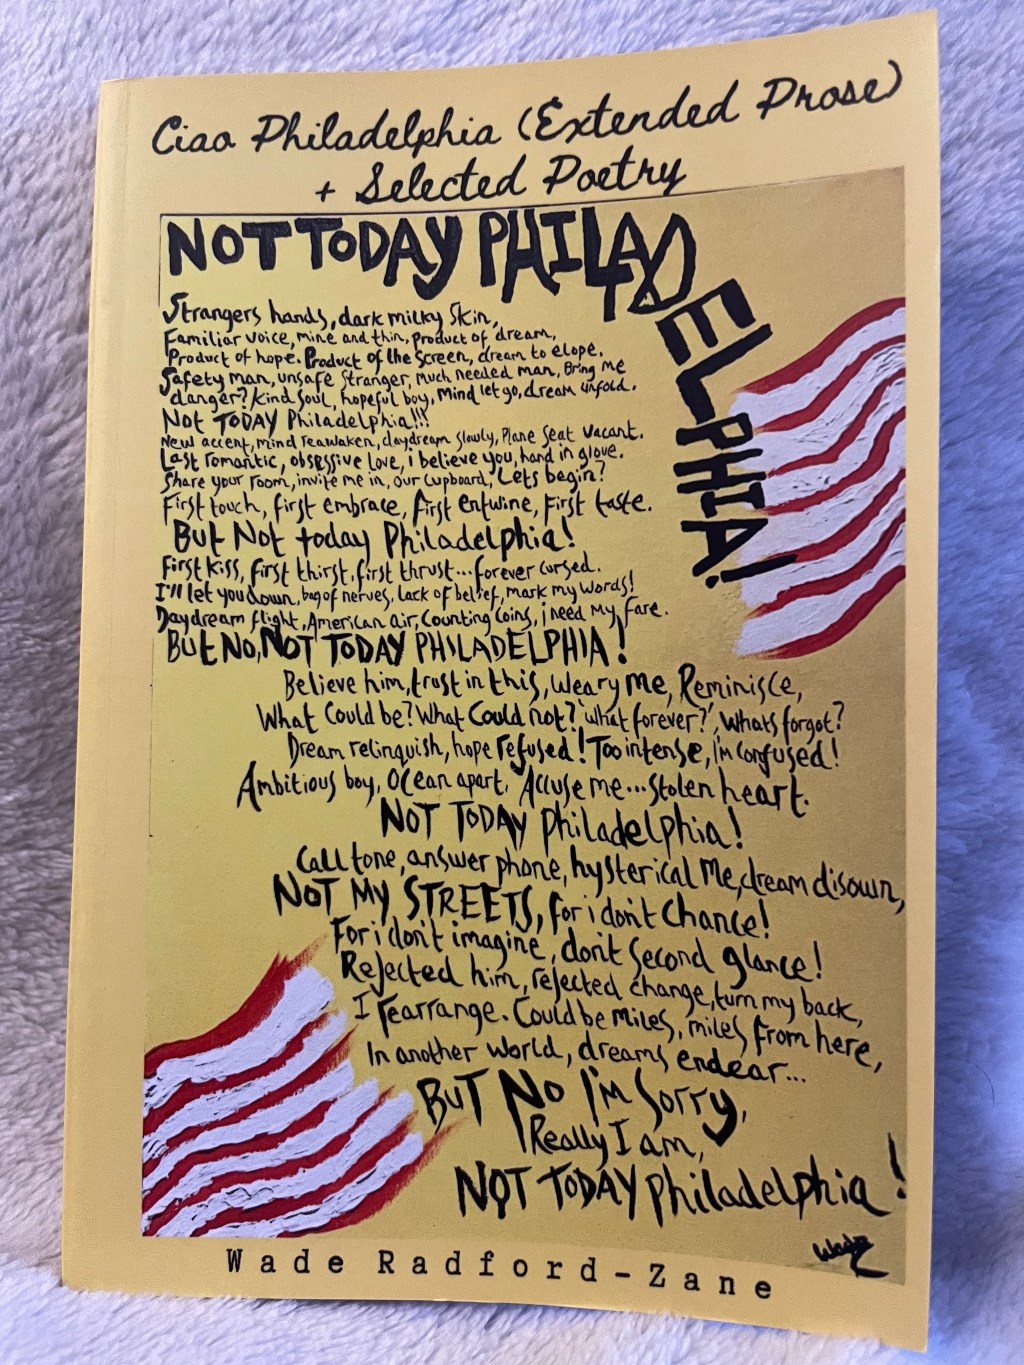 Ciao Philadelphia (Extended Prose)
+ Selected Poetry
NOT TODAY PHILADELPHIA!
Strangers hands, dark milky skin,
Familiar voice, mine and thin, product of dream,
Product of hope. Product of the screen, dream to elope.
Safety man, unsafe stranger, much needed man, bring me
danger? Kind soul, hopeful boy, mind let go, dream unfold.
Not TODAY Philadelphia!!!
New accent, mind reawaken, daydream slowly, Plane seat vacant.
Last romantic, obsessive love, i believe you, hand in glove.
Share your room, invite me in, our cupboard, Lets begin?
First touch, first embrace, first entwine, first taste.
But Not today Philadelphia!
First kiss, first thirst, first thrust... forever cursed.
I'll let you down, bag of nerves, lack of belief, mark my words!
Daydream flight, American air, Counting Coins, i need my fare.
But No, NOT TODAY PHILADELPHIA!
Believe him, trust in this, weary me, Reminisce,
What Could be? What Could not? 'what forever?', whats forgot?
Dream relinquish, hope refused! Too intense, i'm confused!
Ambitious boy, Ocean apart, Accuse me... stolen heart.
NOT TODAY Philadelphia!
Call tone, answer phone, hysterical me, dream disown,
NOT MY STREETS, for i don't chance!
For i don't imagine, don't second glance!
Rejected him, rejected change, turn my back,
I rearrange. Could be miles, miles from here,
In another world, dreams endear...
BUT NO I'm Sorry,
Really I am,
NOT TODAY Philadelphia!
Wade Z
Wade Radford-Zane